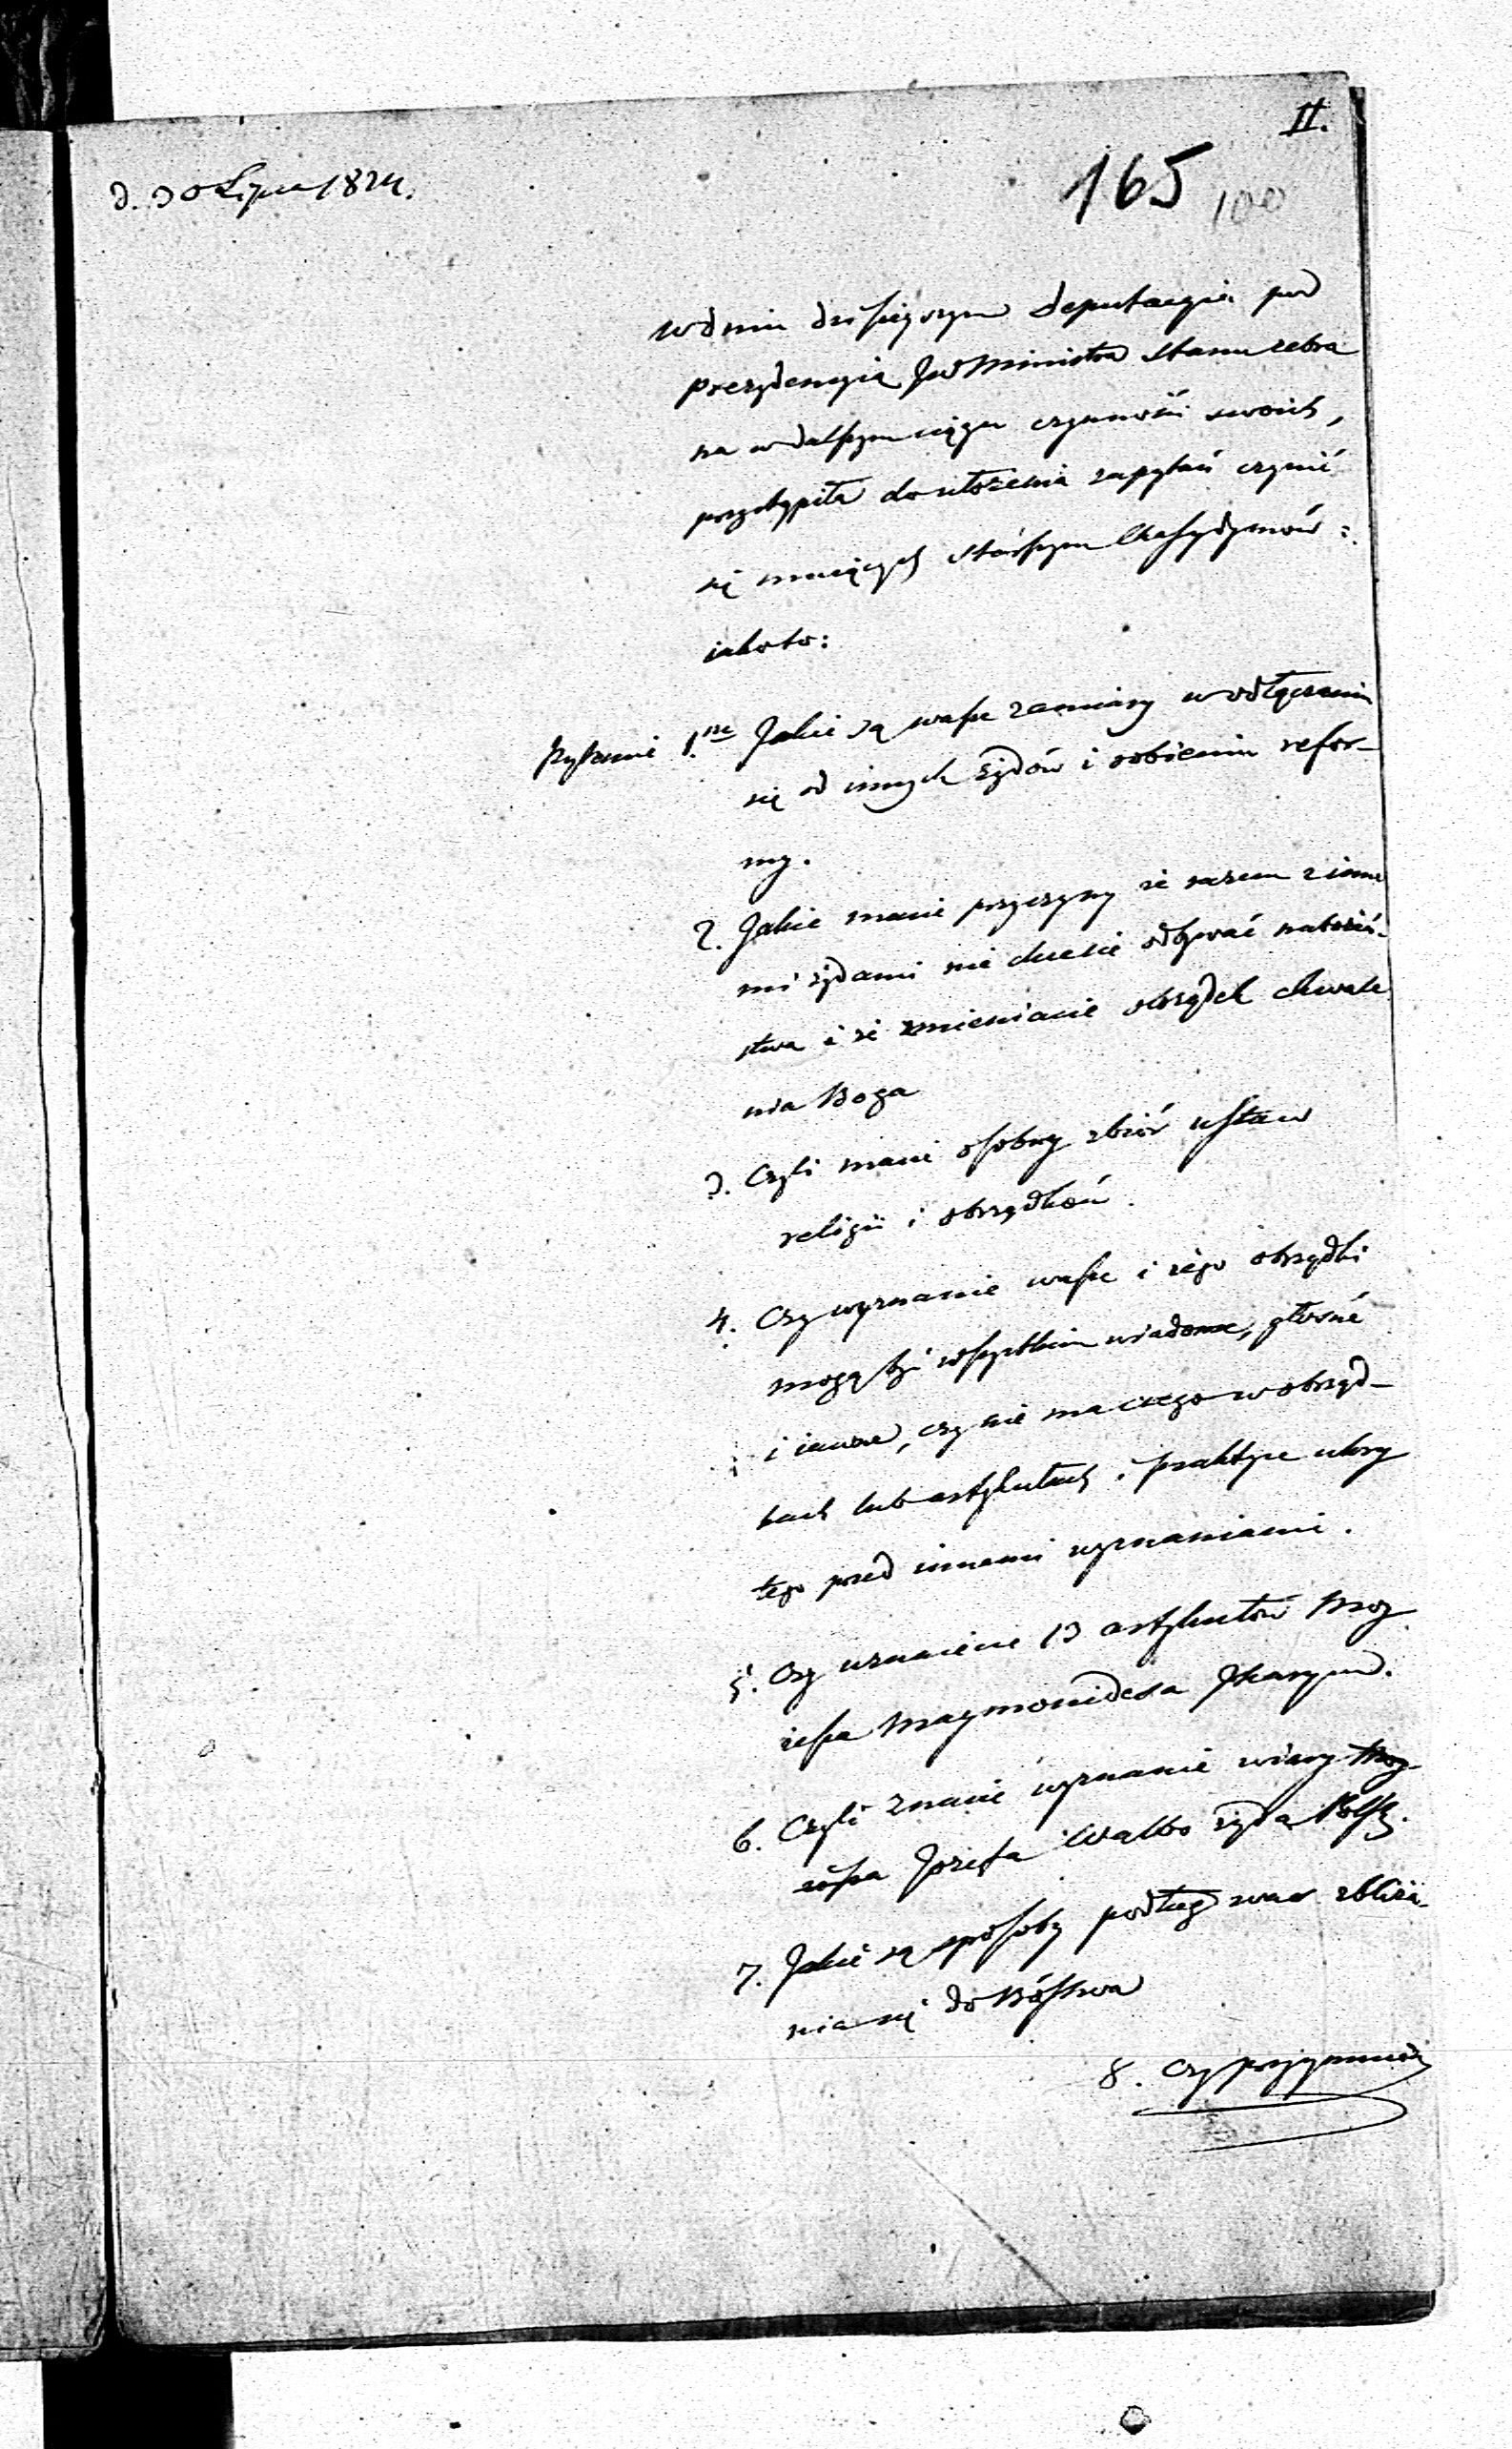 II.
165 100
d. 30 Lipca 1824.
W dniu dzisieyszym deputacyia pod
prezydencyią JW Ministra Stanu zebra
na w dalszym ciągu czynności swoich,
przystąpiła do ułożenia zapytań czynić
się maiących starszym Chassydymów:
iakoto:
Pytanie 1.ne Jakie są wasze zamiary w odłączeniu
się od innych żydów i robieniu refor-
my.
2. Jakie macie przyczyny że razem z inne
mi żydami nie chcecie odbywać nabożeń-
stwa i że zmieniacie obrządek chwale
nia Boga
3. Czyli macie osobny zbiór ustaw
religii i obrządków.
4. Czy wyznanie wasze i iego obrządki
mogą być wszystkim wiadome, głośne
i iawne, czy nie ma czego w obrząd-
kach lub artykułach i praktyce ukry
tego przed innemi wyznaniami.
5. Czy uznaiecie 13 artykułów Moy
żesza Maymonidesa Jkarym.
6. Czyli znacie wyznanie wiary Moy-
żesza Jozefa Walbo żyda Polsk.
7. Jakie są sposoby podług was zbliża-
nia się do Bóstwa
8. Czy przyymuie